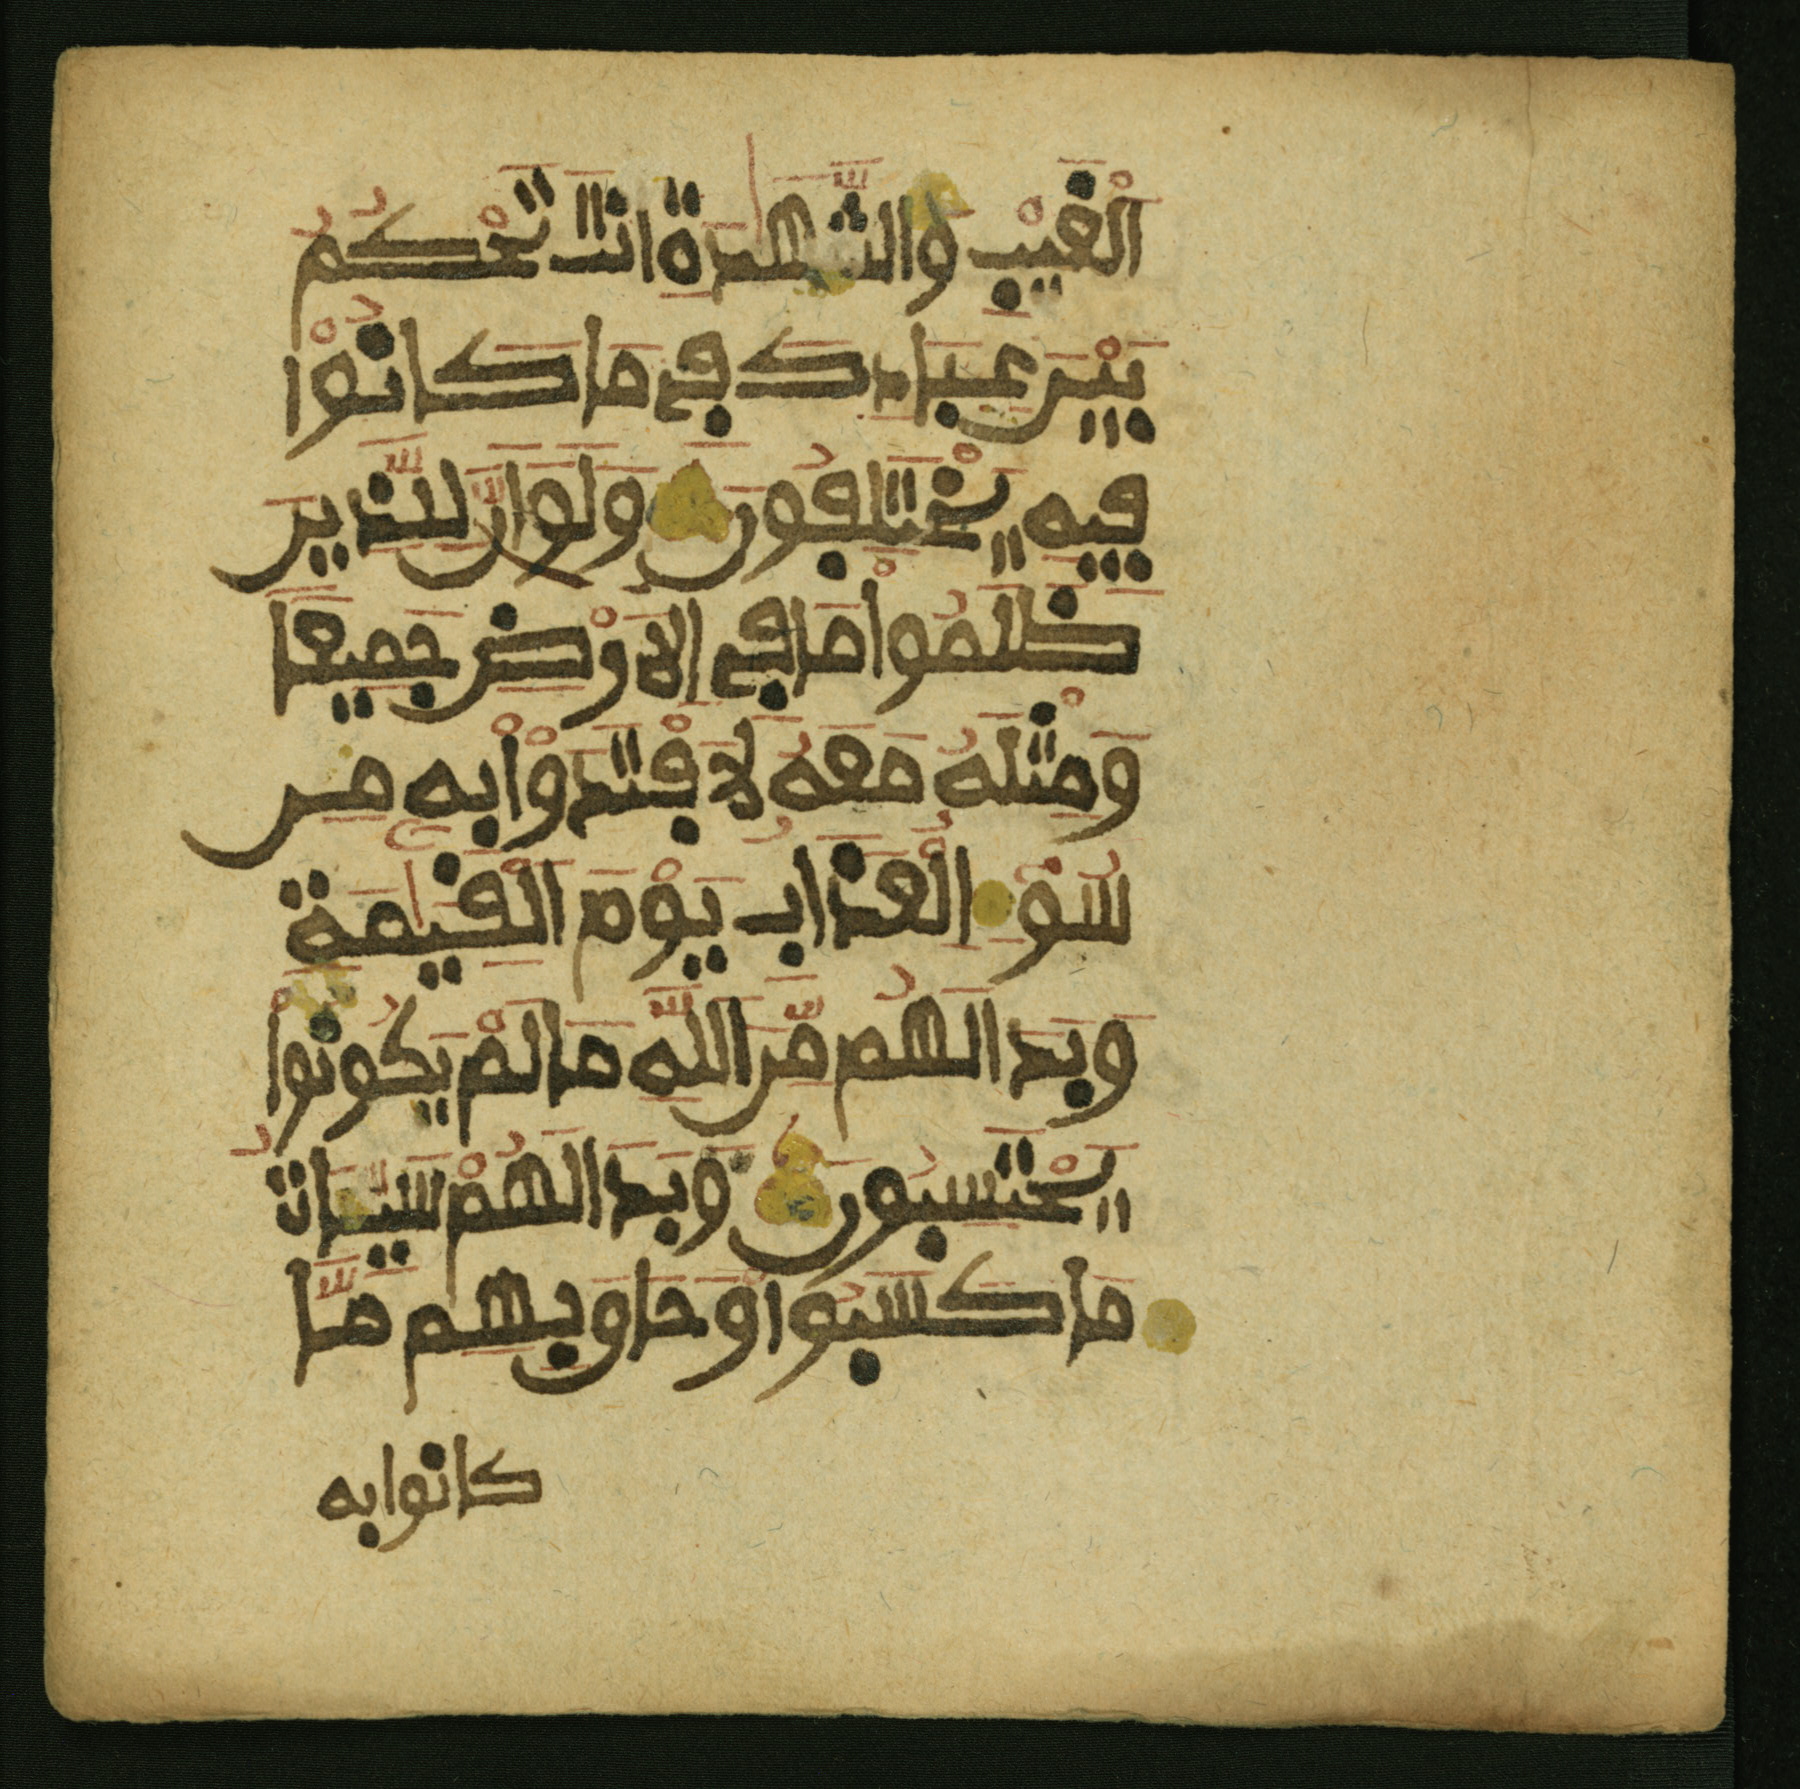 الْغَيْبِ وَالشَّهَدَةِ أَنتَ تَحْكُمُ
بَيْنَ عِبَادِكَ فِي مَا كَانُوْا
فِيهِ يَخْتَلِفُونَ وَلَوْ أَنَّ لِلَّذِينَ
ظَلَمُواْ مَا فِي الَارْضِ جَمِيعًا
وَمِثْلَهُ مَعَهُ لَافْتَدَوْاْ بِهِ مِن
سُوءِ الْعَذَابِ يَوْمَ الْقِيَمَةِ
وَبَدَا لَهُم مِّنَ اللَّهِ مَا لَمْ يَكُونُواْ
يَحْتَسِبُونَ وَبَدَا لَهُمْ سَيِّئَاتُ
مَا كَسَبُواْ وَحَاقَ بِهِم مَّا
كانوا به